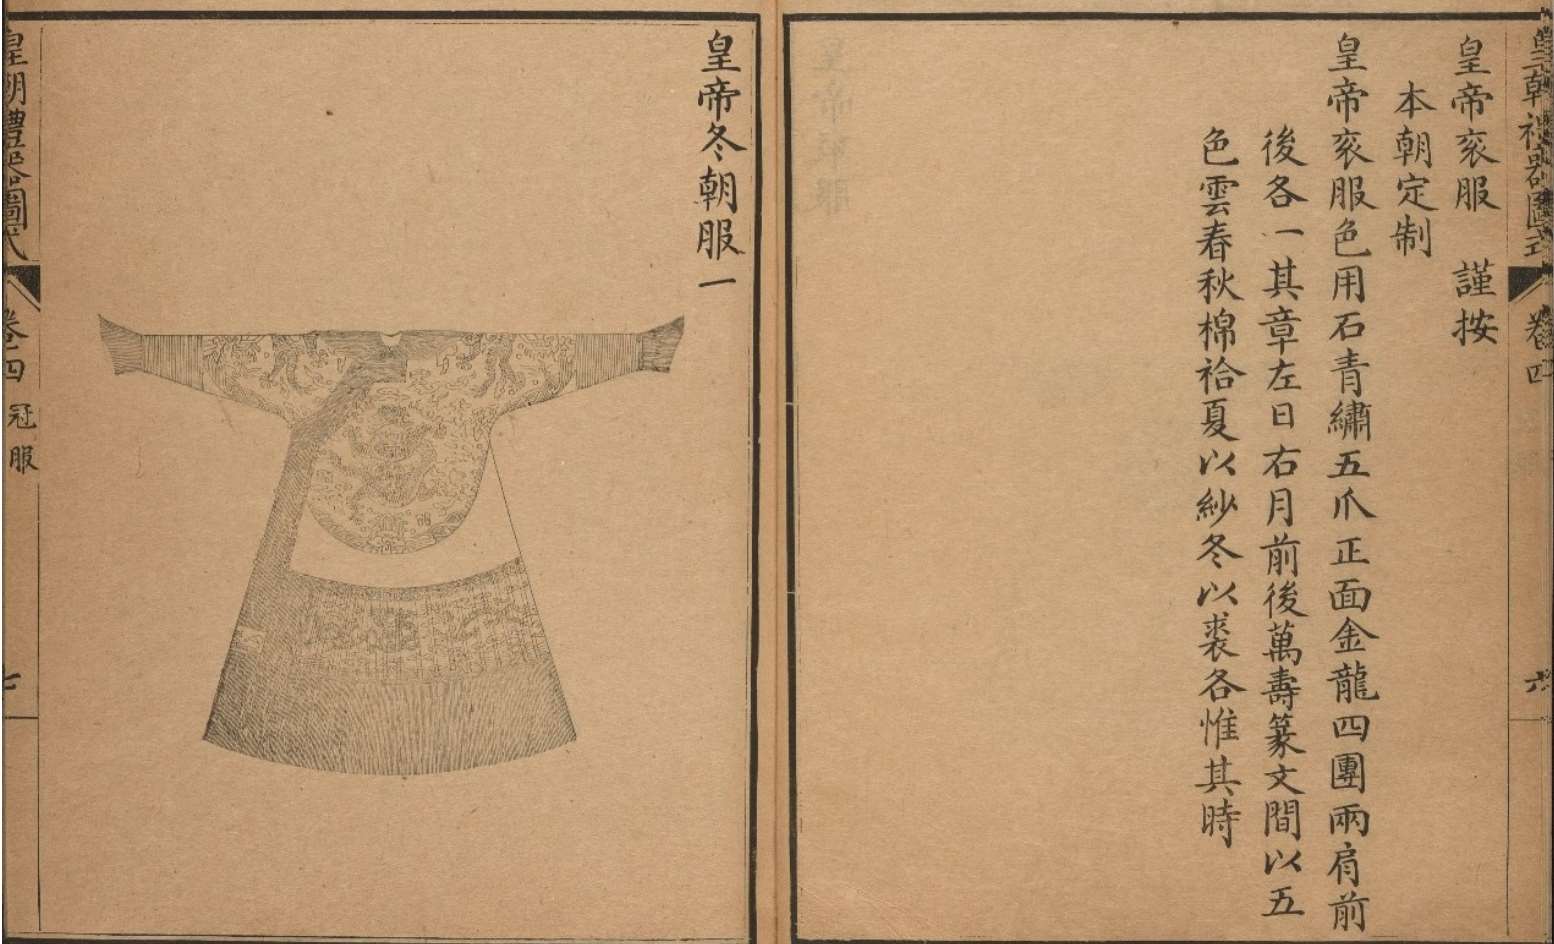 皇朝禮器圖式 卷四 六
皇帝衮服 謹按
本朝定制
皇帝衮服色用石青繡五爪正面金龍四團兩肩前
後各一其章左日右月前後萬壽篆文間以五
色雲春秋棉袷夏以紗冬以裘各惟其時
皇帝冬朝服一
皇朝禮器圖式 卷四 冠服 七